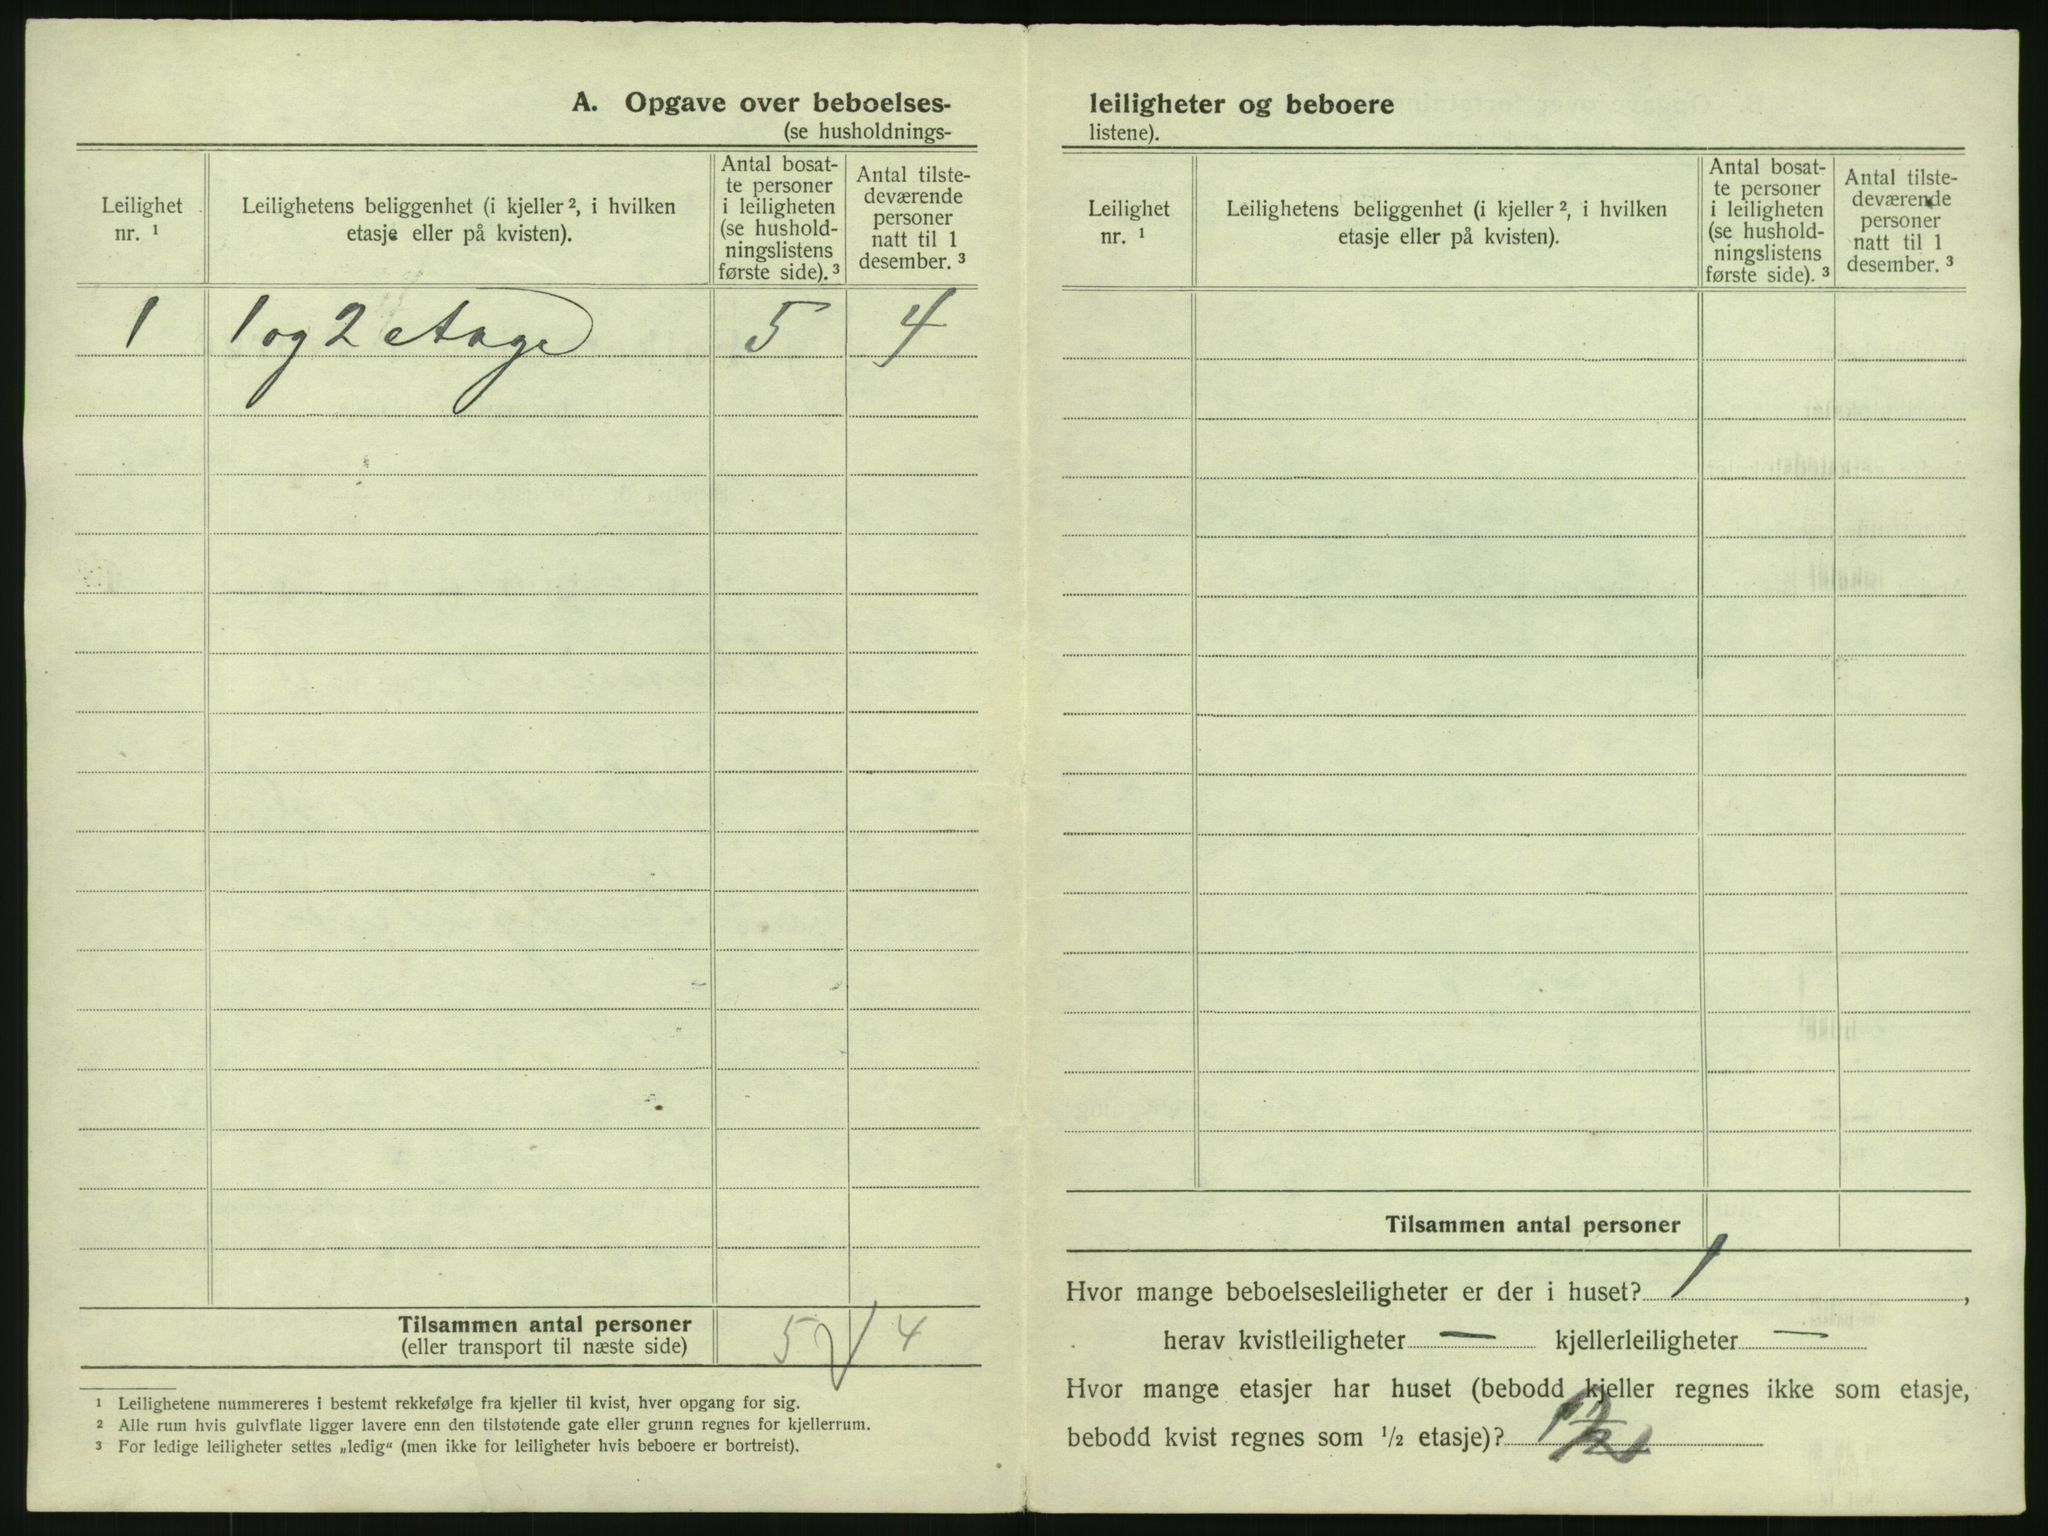 A. Opgave over beboelses-
(se husholdnings-
Leilighet
nr. ¹
Leilighetens beliggenhet (i kjeller ², i hvilken
etasje eller på kvisten).
Antal bosat-
te personer
i leiligheten
(se hushold-
ningslistens
første side). ³
Antal tilste-
deværende
personer
natt til 1
desember. ³
1 1 og 2 etage 5 4
Tilsammen antal personer
(eller transport til næste side)
5 4
¹ Leilighetene nummereres i bestemt rekkefølge fra kjeller til kvist, hver opgang for sig.
² Alle rum hvis gulvflate ligger lavere enn den tilstøtende gate eller grunn regnes for kjellerrum.
³ For ledige leiligheter settes „ledig“ (men ikke for leiligheter hvis beboere er bortreist).
leiligheter og beboere
listene).
Leilighet
nr. ¹
Leilighetens beliggenhet (i kjeller ², i hvilken
etasje eller på kvisten).
Antal bosat-
te personer
i leiligheten
(se hushold-
ningslistens
første side). ³
Antal tilste-
deværende
personer
natt til 1
desember. ³
Tilsammen antal personer
Hvor mange beboelsesleiligheter er der i huset? 1,
herav kvistleiligheter — kjellerleiligheter —
Hvor mange etasjer har huset (bebodd kjeller regnes ikke som etasje,
bebodd kvist regnes som ½ etasje)?